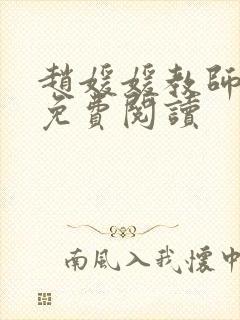 趙媛媛教師
免費閱讀
南風入我懷中